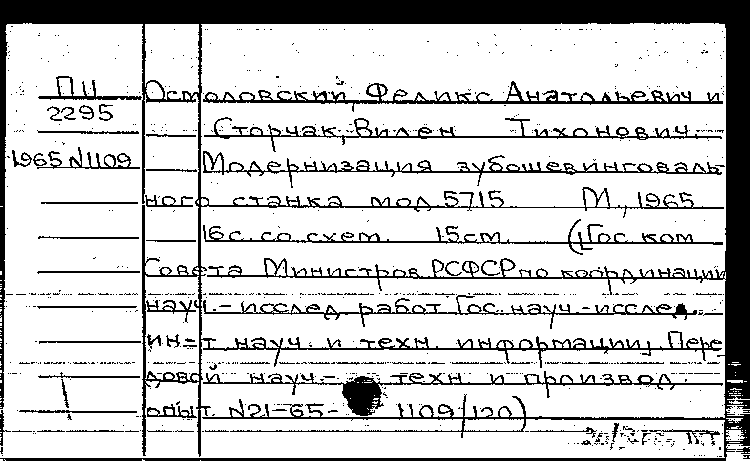 ПЦ
2295
1965 N1109
Осмоловский, Феликс Анатольевич и
Сторчак, Вилен Тихонович.
Модернизация зубошевинговаль
ного станка мод. 5715 М., 1965
16с. со схем. 15см. (Гос. ком
Совета Министров РСФСР по координации
науч.-исслед. работ Гос. науч.-исслед.
ин-т науч. и техн. информации. Пере
довой науч.- техн. и производ.
опыт. N21-65- 1109/120)